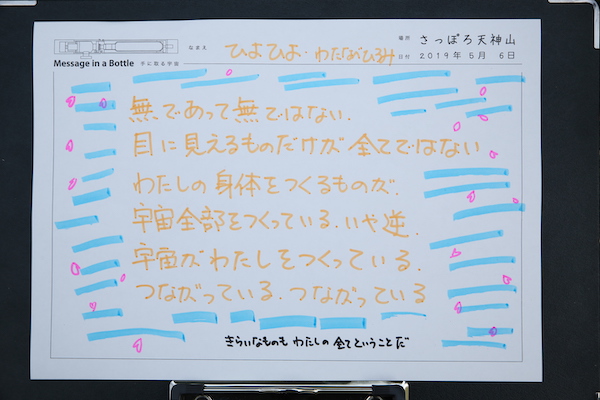 なまえ
ひよひよ・わたなびひろみ
場所 さっぽろ天神山
Message in a Bottle 手に取る宇宙
日付 2019年 5月 6日
無であって無ではない.
目に見えるものだけが全てではない
わたしの身体をつくるものが.
宇宙全部をつくっている.いや逆.
宇宙がわたしをつくっている.
つながっている.つながっている
きらいなものも わたしの 全てということだ